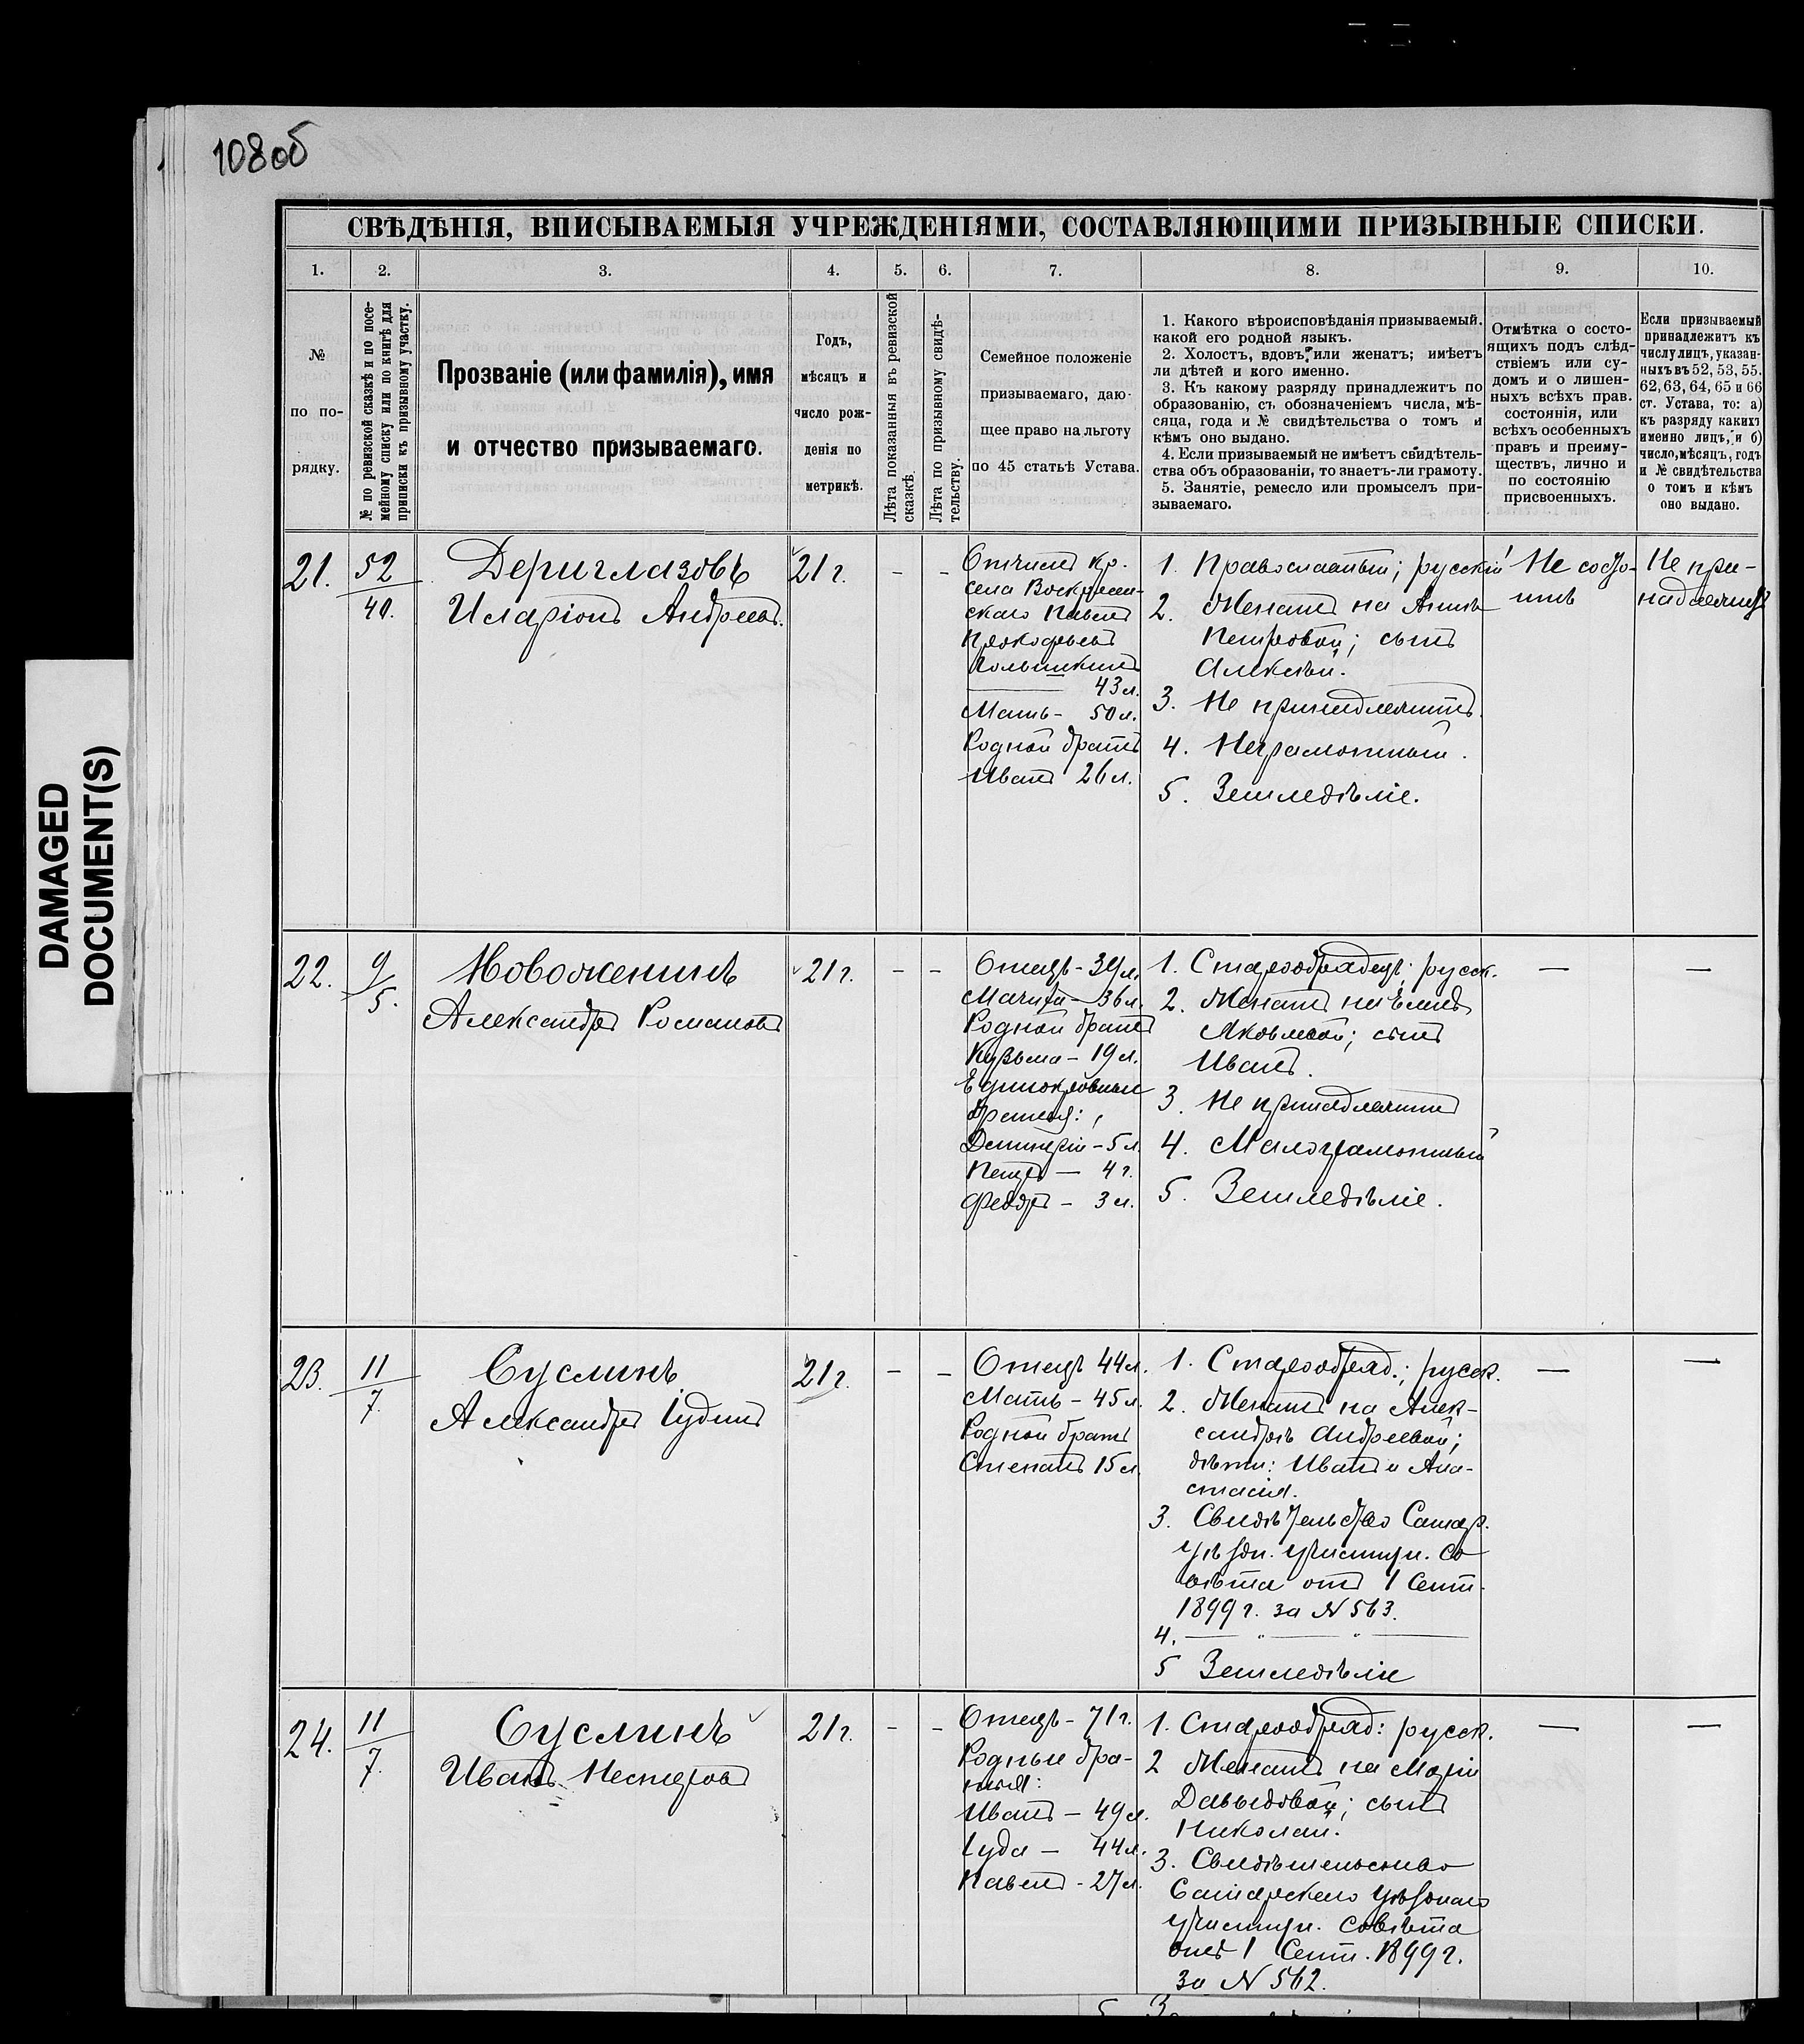 108 об
DAMAGED
DOCUMENT(S)
СВѢДѢНІЯ, ВПИСЫВАЕМЫЯ УЧРЕЖДЕНІЯМИ, СОСТАВЛЯЮЩИМИ ПРИЗЫВНЫЕ СПИСКИ.
1. 2. 3. 4. 5. 6. 7. 8. 9. 10.
№
по по-
рядку.
№ по ревизской сказкѣ и по посе-
мейному списку или по книгѣ для
приписки къ призывному участку.
Прозваніе (или фамилія), имя
и отчество призываемаго.
Годъ,
мѣсяцъ и
число рож-
денія по
метрикѣ.
Лѣта показанныя въ ревизской
сказкѣ.
Лѣта по призывному свидѣ-
тельству.
Семейное положеніе
призываемаго, даю-
щее право на льготу
по 45 статьѣ Устава.
1. Какого вѣроисповѣданія призываемый.
какой его родной языкъ.
2. Холостъ, вдовъ, или женатъ; имѣетъ
ли дѣтей и кого именно.
3. Къ какому разряду принадлежитъ по
образованію, съ обозначеніемъ числа, мѣ-
сяца, года и № свидѣтельства о томъ и
кѣмъ оно выдано.
4. Если призываемый не имѣетъ свидѣтель-
ства объ образованіи, то знаетъ-ли грамоту.
5. Занятіе, ремесло или промыселъ при-
зываемаго.
Отмѣтка о состо-
ящихъ подъ слѣд-
ствіемъ или су-
домъ и о лишен-
ныхъ всѣхъ прав.
состоянія, или
всѣхъ особенныхъ
правъ и преиму-
ществъ, лично и
по состоянію
присвоенныхъ.
Если призываемый
принадлежитъ къ
числу лицъ, указан-
ныхъ въ 52, 53, 55.
62, 63, 64, 65 и 66
ст. Устава, то: а)
къ разряду какихъ
именно лицъ, и б)
число, мѣсяцъ, годъ
и № свидѣтельства
о томъ и кѣмъ
оно выдано.
21.
52
40.
Дериглазовъ
Иларіонъ Андреевъ.
21 г.
-
-
Отчимъ кр.
села Воскресен-
скаго Павелъ
Прокофьевъ
43 л.
Мать - 50 л.
Родной братъ
Иванъ 26 л.
1. Православный; русскій
2. Женатъ на Аннѣ
Петровой; сынъ
Алексѣй.
3. Не принадлежитъ.
4. Неграмотный.
5. Земледѣліе.
Не состо-
итъ
Не при-
надлежитъ
22.
9
5.
Новоженинъ
Александръ Романовъ
21 г.
-
-
Отецъ - 39 л.
Мачиха - 36 л.
Родной братъ
Кузьма - 19 л.
Единокровные
братья:
Дмитрій - 5 л.
Петръ — 4 г.
Федоръ - 3 л.
1. Старообрядецъ; русск.
2. Женатъ на Еленѣ
Яковлевой; сынъ
Иванъ.
3. Не принадлежитъ
4. Малограмотный
5. Земледѣліе.
—
—
23.
11
7.
Суслинъ
Александръ Іудинъ
21 г.
-
-
Отецъ 44 л.
Мать - 45 л.
Родной братъ
Степанъ 15 л.
1. Старообряд.; русск.
2. Женатъ на Алек-
сандрѣ Андреевой;
дѣти: Иванъ и Ана-
стасія.
3. Свидѣтельство Самар.
уѣздн. училищн. Со
вѣта отъ 1 Сент.
1899 г. за N 563.
4. — " — " —
5 Земледѣліе
—
—
24.
11
7.
Суслинъ
Иванъ Нестеровъ
21 г.
-
-
Отецъ - 71 г.
Родные бра-
тья:
Иванъ — 49 л.
Іуда — 44 л.
Павелъ - 27 л.
1. Старообряд: русск.
2 Женатъ на Маріи
Давыдовой; сынъ
Николай.
3. Свидѣтельство
Самарскаго Уѣзднаго
училищн. Совѣта
отъ 1 Сент. 1899 г.
за N 562.
—
—